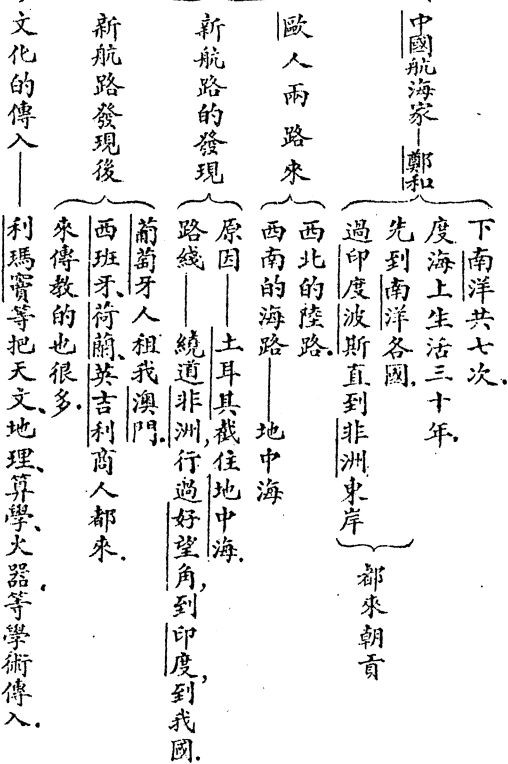 中國航海家—鄭和
下南洋共七次.
度海上生活三十年.
先到南洋各國.
過印度波斯直到非洲東岸
都來朝貢
歐人兩路來
西北的陸路.
西南的海路——地中海
新航路的發現
原因——土耳其截住地中海.
路綫——繞道非洲,行過好望角,到印度,到我國.
新航路發現後
葡萄牙人租我澳門.
西班牙、荷蘭、英吉利商人都來.
來傳教的也很多.
文化的傳入——利瑪竇等把天文、地理、算學、火器、等學術傳入.